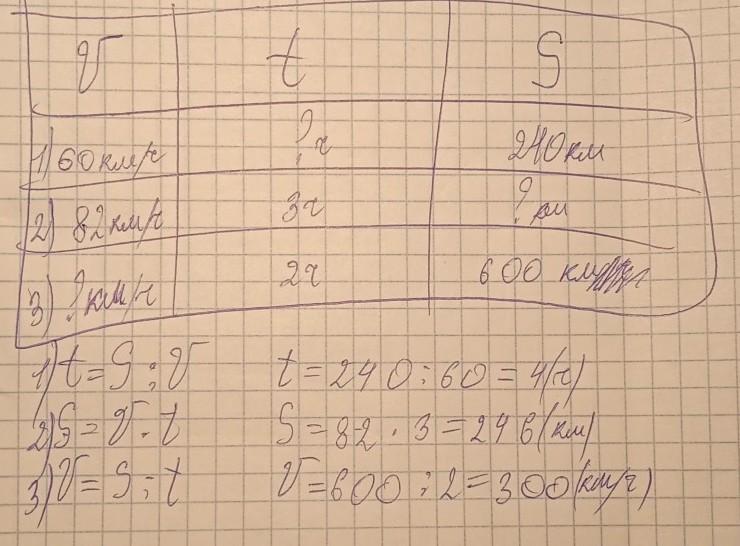 V t S
1) 60 км/ч ? ч 240 км
2) 82 км/ч 3ч ? км
3) ? км/ч 2ч 600 км
1) t = S : V t = 240 : 60 = 4(ч)
2) S = V · t S = 82 · 3 = 246(км)
3) V = S : t V = 600 : 2 = 300(км/ч)